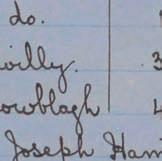 do.
willy. 3
owblagh 4
Joseph Ham